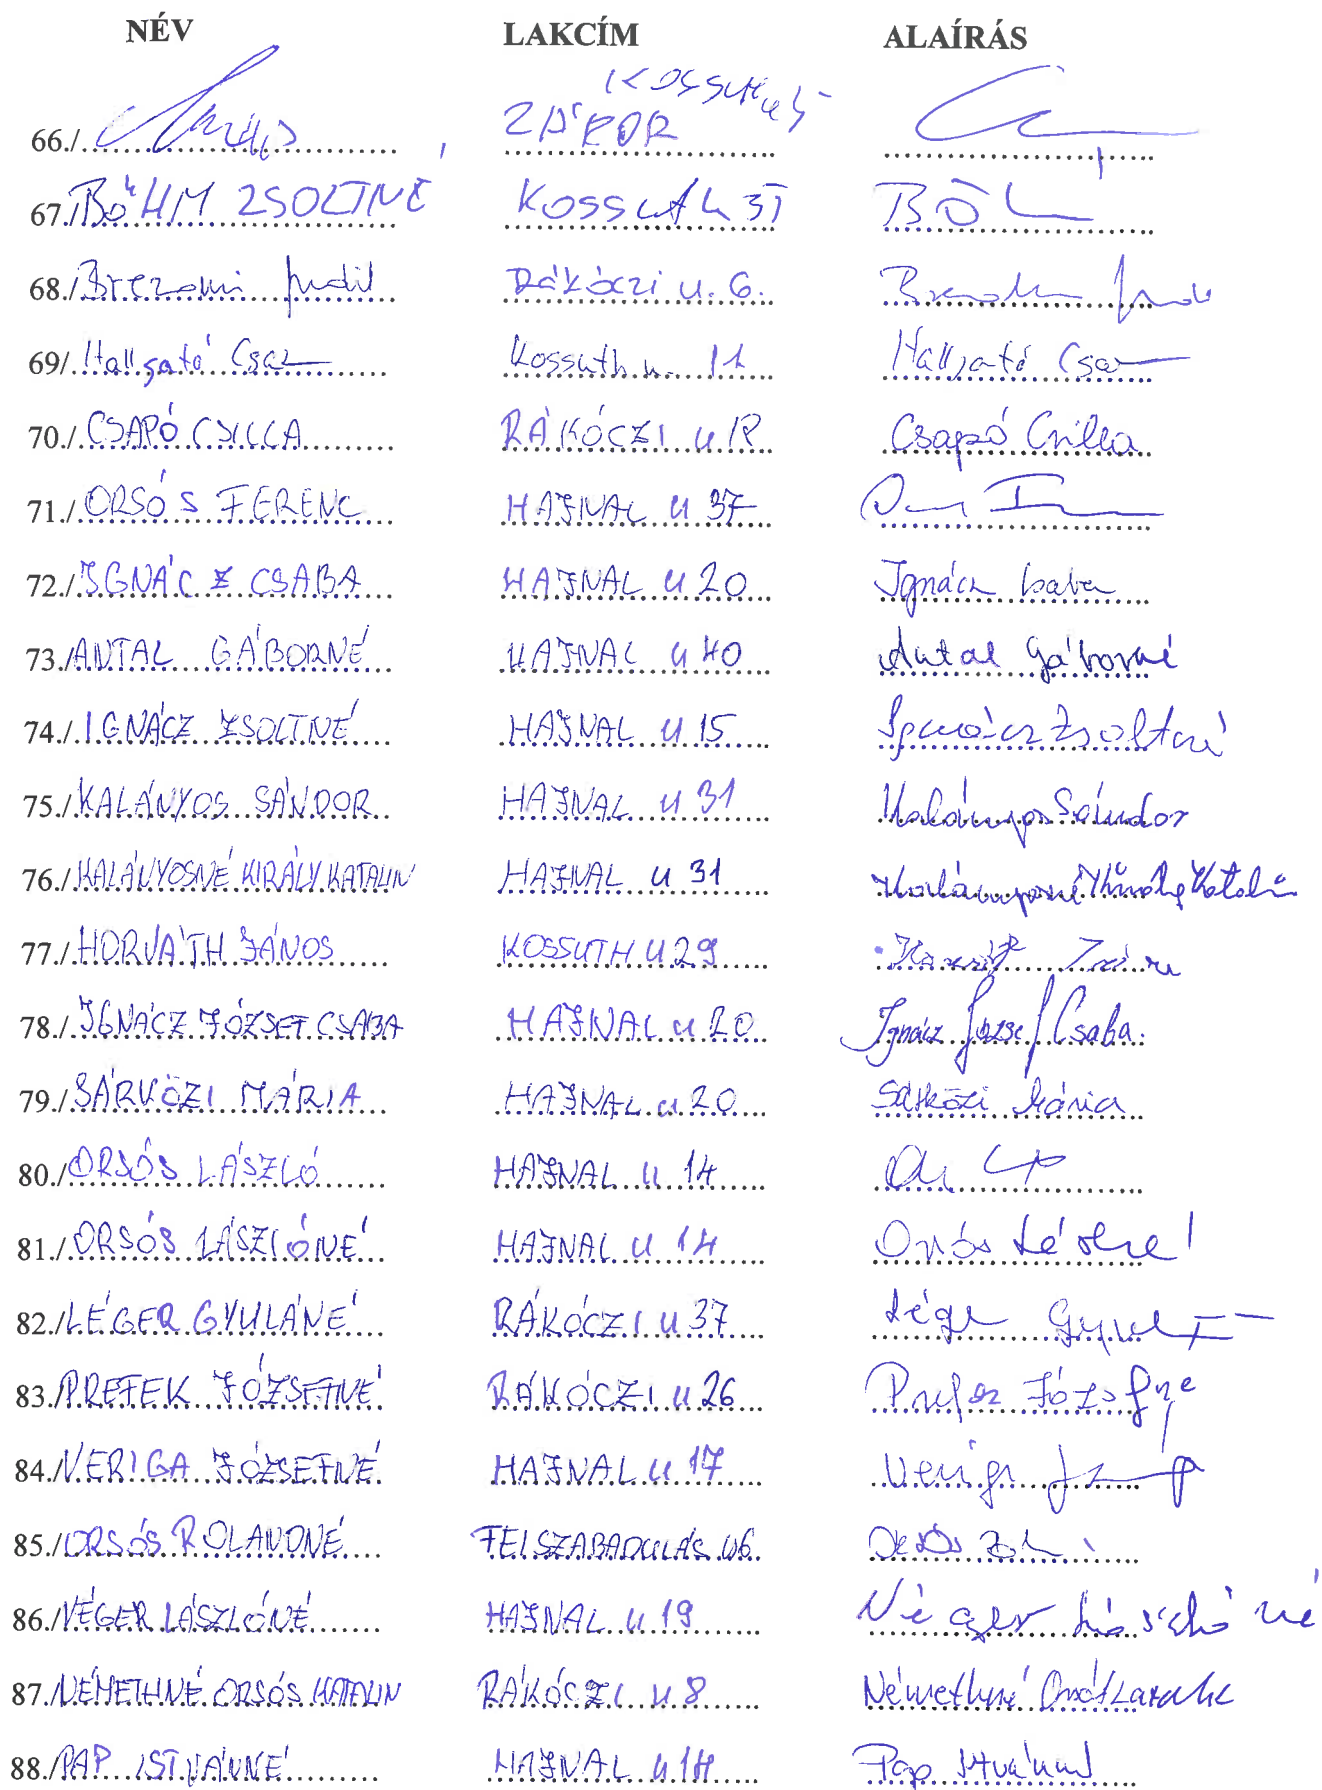 NÉV LAKCÍM ALAÍRÁS
66./ ZÁPOR Kossuth u
67./ BŐHM ZSOLTNÉ Kossuth 35
68./ Brezomi Judit Rákóczi u. 6.
69/ Hallgató Kossuth u. Hallgató
70./ CSAPÓ CSILLA RÁKÓCZI u 12 Csapó Csilla
71./ ORSÓS FERENC HAJNAL u 37
72./ IGNÁCZ CSABA HAJNAL u 20 Ignácz
73./ ANTAL GÁBORNÉ HAJNAL u 40 Antal Gáborné
74./ IGNÁCZ ZSOLTNÉ HAJNAL u 15 Ignácz Zsoltné
75./ KALÁNYOS SÁNDOR HAJNAL u 31 Kalányos Sándor
76./ KALÁNYOSNÉ KIRÁLY KATALIN HAJNAL u 31 Kalányosné Király Katalin
77./ HORVÁTH JÁNOS KOSSUTH u 29
78./ IGNÁCZ JÓZSEF CSABA HAJNAL u 20 Ignácz József Csaba
79./ SÁRKÖZI MÁRIA HAJNAL u 20 Sárközi Mária
80./ ORSÓS LÁSZLÓ HAJNAL u 14
81./ ORSÓS LÁSZLÓNÉ HAJNAL u 14 Orsós
82./ LÉGER GYULÁNÉ RÁKÓCZI u 37
83./ PREFEK JÓZSEFNÉ RÁKÓCZI u 26 Józsefne
84./ VERIGA JÓZSEFNÉ HAJNAL u 17
85./ ORSÓS ROLANDNÉ FELSZABADULÁS u 6
86./ VÉGER LÁSZLÓNÉ HAJNAL u 19
87./ NÉMETHNÉ ORSÓS KATALIN RÁKÓCZI u 8 Némethné
88./ PAP ISTVÁNNÉ HAJNAL u 14 Pap